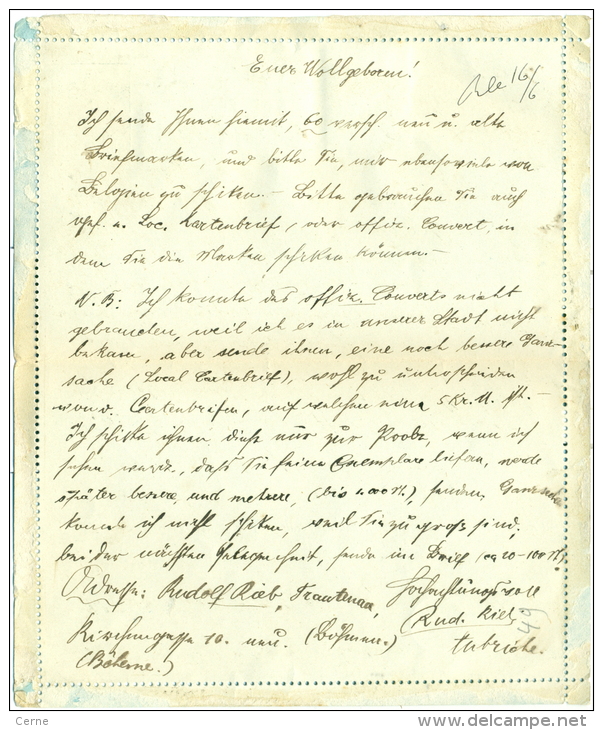 Euer Wollgeboren!
16/6
Ich sende Ihnen hiemit, 60 versch. neu u. alte
Briefmarken, und bitte Sie, mir ebensoviele von
Belgien zu schiken. – Bitte gebrauchen Sie auch
u. Loc. Kartenbrief, oder offiz. Convert, in
dem Sie die Marken schiken können. –
N.B: Ich konnte das offiz. Converts nicht
gebrauchen, weil ich es in unserer Stadt nicht
bekam, aber sende ihnen, eine noch bessere Ganz-
sache (Local Cartenbrief), wohl zu unterscheiden
von d. Cartenbriefen, auf welchen eine 5 Kr. M. ist. –
Ich schicke ihnen dies nur zur Probe, wenn ich
sehen werde, dass Sie feine Exemplare liefern, werde
später bessere, und mehrere, senden, Ganzsache
konnte ich nicht schiken, weil Sie zu gross sind,
bei der nächsten Gelegenheit, sende im Brief
Adresse: Rudolf Rieb, Trautenau, Hochachtungsvoll
Kirchengasse 10. neu. (Böhmen.) Rud. Rieb
(Bóheme.)
49
Cerne
delcampe.net